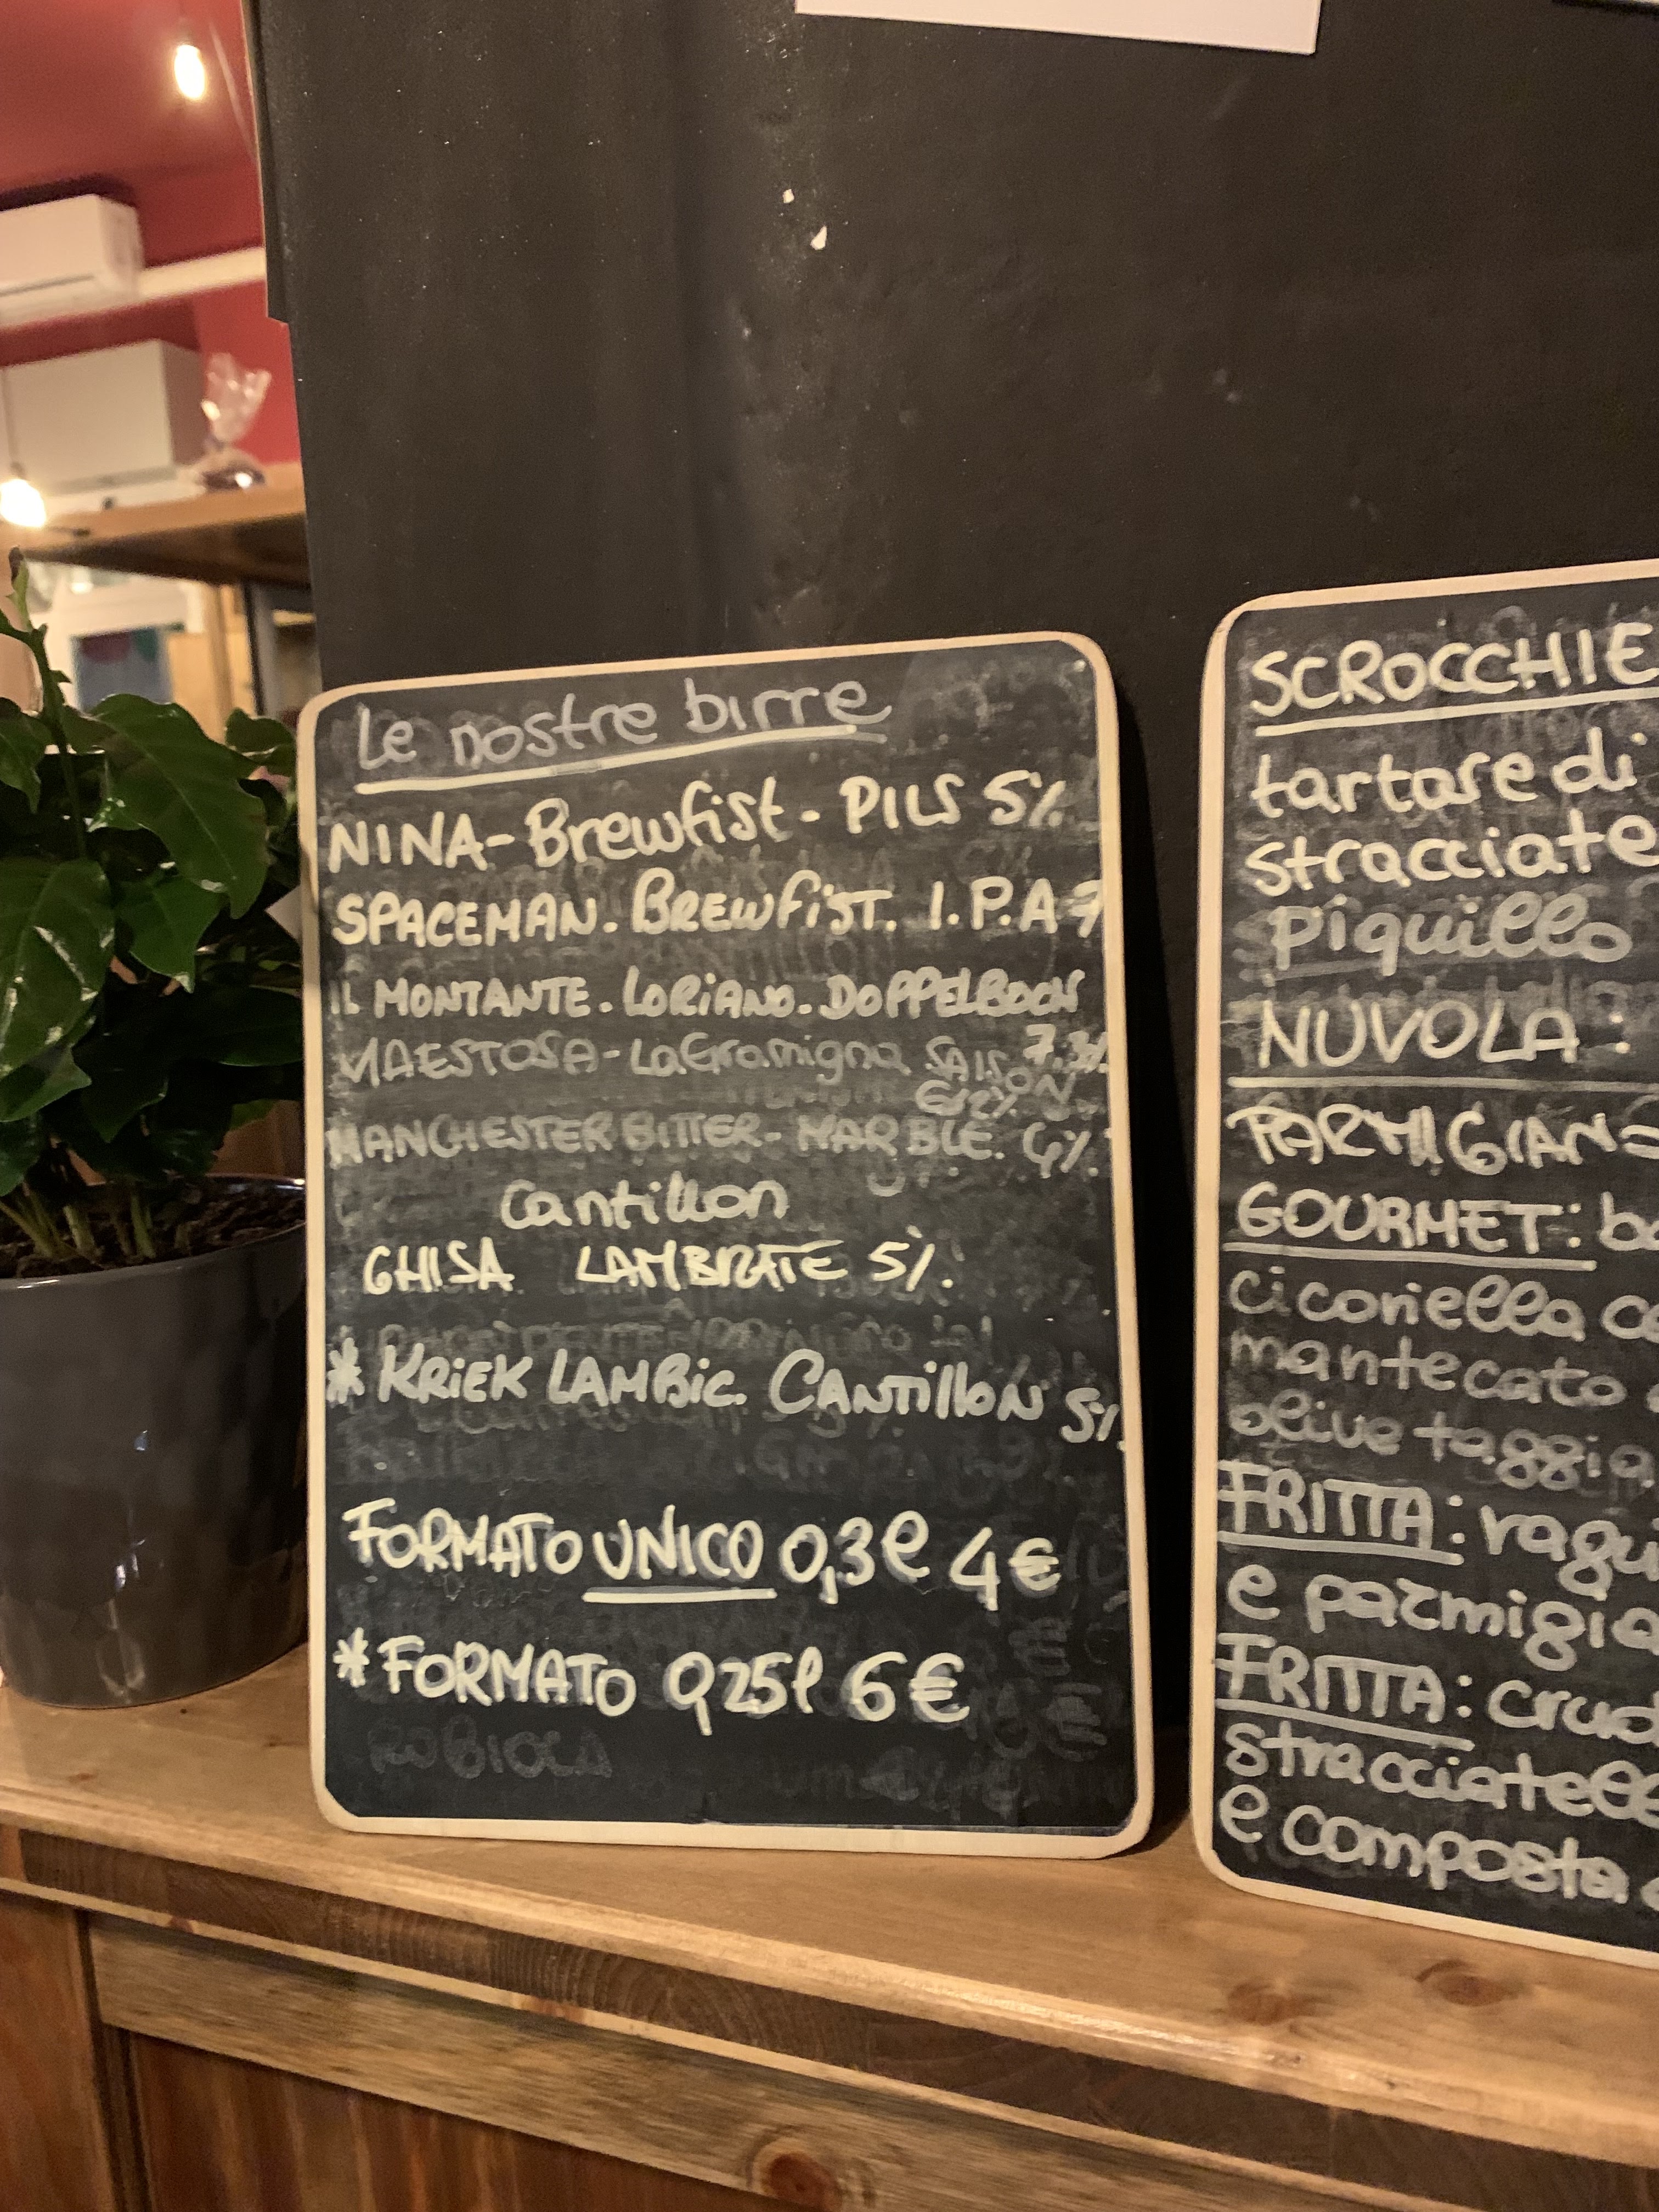 Le nostre birre
NINA - Brewfist - PILS 5%
SPACEMAN. BREWFIST. I.P.A 7
IL MONTANTE. LORIANO. DOPPELBOCK
7.3%
MAESTOSA - La Gramigna SAISON
MANCHESTER BITTER - MARBLE. 4%.
Cantillon
GHISA LAMBRATE 5%.
* KRIEK LAMBIC. CANTILLON 5%.
FORMATO UNICO 0,3 l 4 €
* FORMATO 0,25 l 6 €
ROBIOLA
SCROCCHIE
tartare di
stracciate
piquillo
NUVOLA :
PARMIGIAN
GOURMET: ba
cicoriella co
mantecato
olive taggia
FRITTA: ragu
e parmigia
FRITTA: crud
stracciatell
e composta